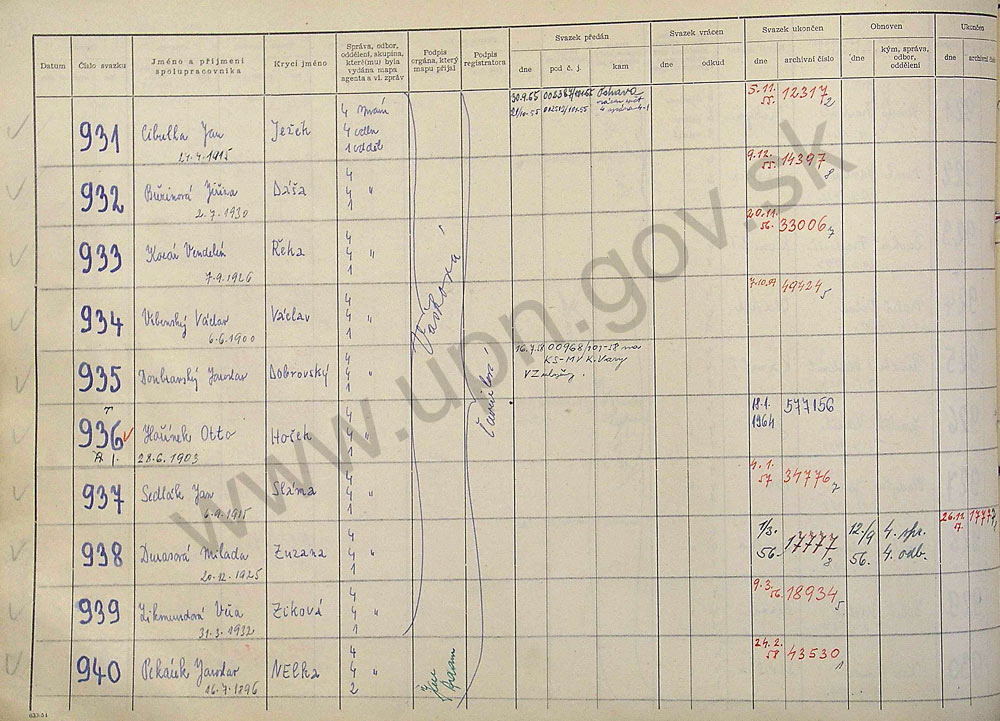 Datum
Číslo svazku
Jméno a příjmení
spolupracovníka
Krycí jméno
Správa, odbor,
oddělení, skupina,
které(mu) byla
vydána mapa
agenta a vl. zpráv
Podpis
orgána, který
mapu přijal
Podpis
registratora
Svazek předán
dne
pod č. j.
kam
Svazek vrácen
dne
odkud
Svazek ukončen
dne
archivní číslo
Obnoven
dne
kým, správa,
odbor,
oddělení
Ukončen
dne
archivní číslo
931 Cibulka Jan Ježek 4 1 30.9.55 Ostrava 5.11. 12317/2
55.
932 Dáša 4 " 9.12. 14397
2.7.1930 4 55. 8
1
933 Vendelín Řeha 4 " 20.11. 33006
7.9.1926 4 56. 7
1
934 Václav Václav 4 " 49424
6.6.1900 4 5
1
935 Doubravský Jaroslav Dobrovský 4 " 16.7.58
4 KS-MV K. Vary
1
936 Otto Hošek 4 " 18.1. 577156
28.6.1903 4 1964
1
937 Sedlák Jan Sláma 4 " 4.1. 34776
6.9.1915 4 57 7
1
938 Milada Zuzana 4 " 1/3. 17777 12/9 4. spr. 26.11. 17777
20.12.1925 4 56. 8 56. 4. odb.
1
939 Věra Ziková 4 " 9.3. 18934
31.3.1932 4 56. 5
1
940 Pekárek Jaroslav NELKA 4 " 24.2. 43530
16.7.1896 4 58 1
2
Vašková
www.upn.gov.sk
633-54